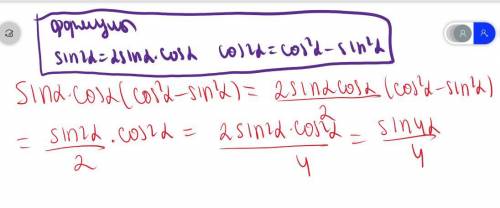 формулы
sin2α=2sinα·cosα cos2α=cos²α-sin²α
sinα·cosα(cos²α-sin²α)= 2sinαcosα/2 (cos²α-sin²α)
= sin2α/2 · cos2α = 2sin2α·cos2α/4 = sin4α/4